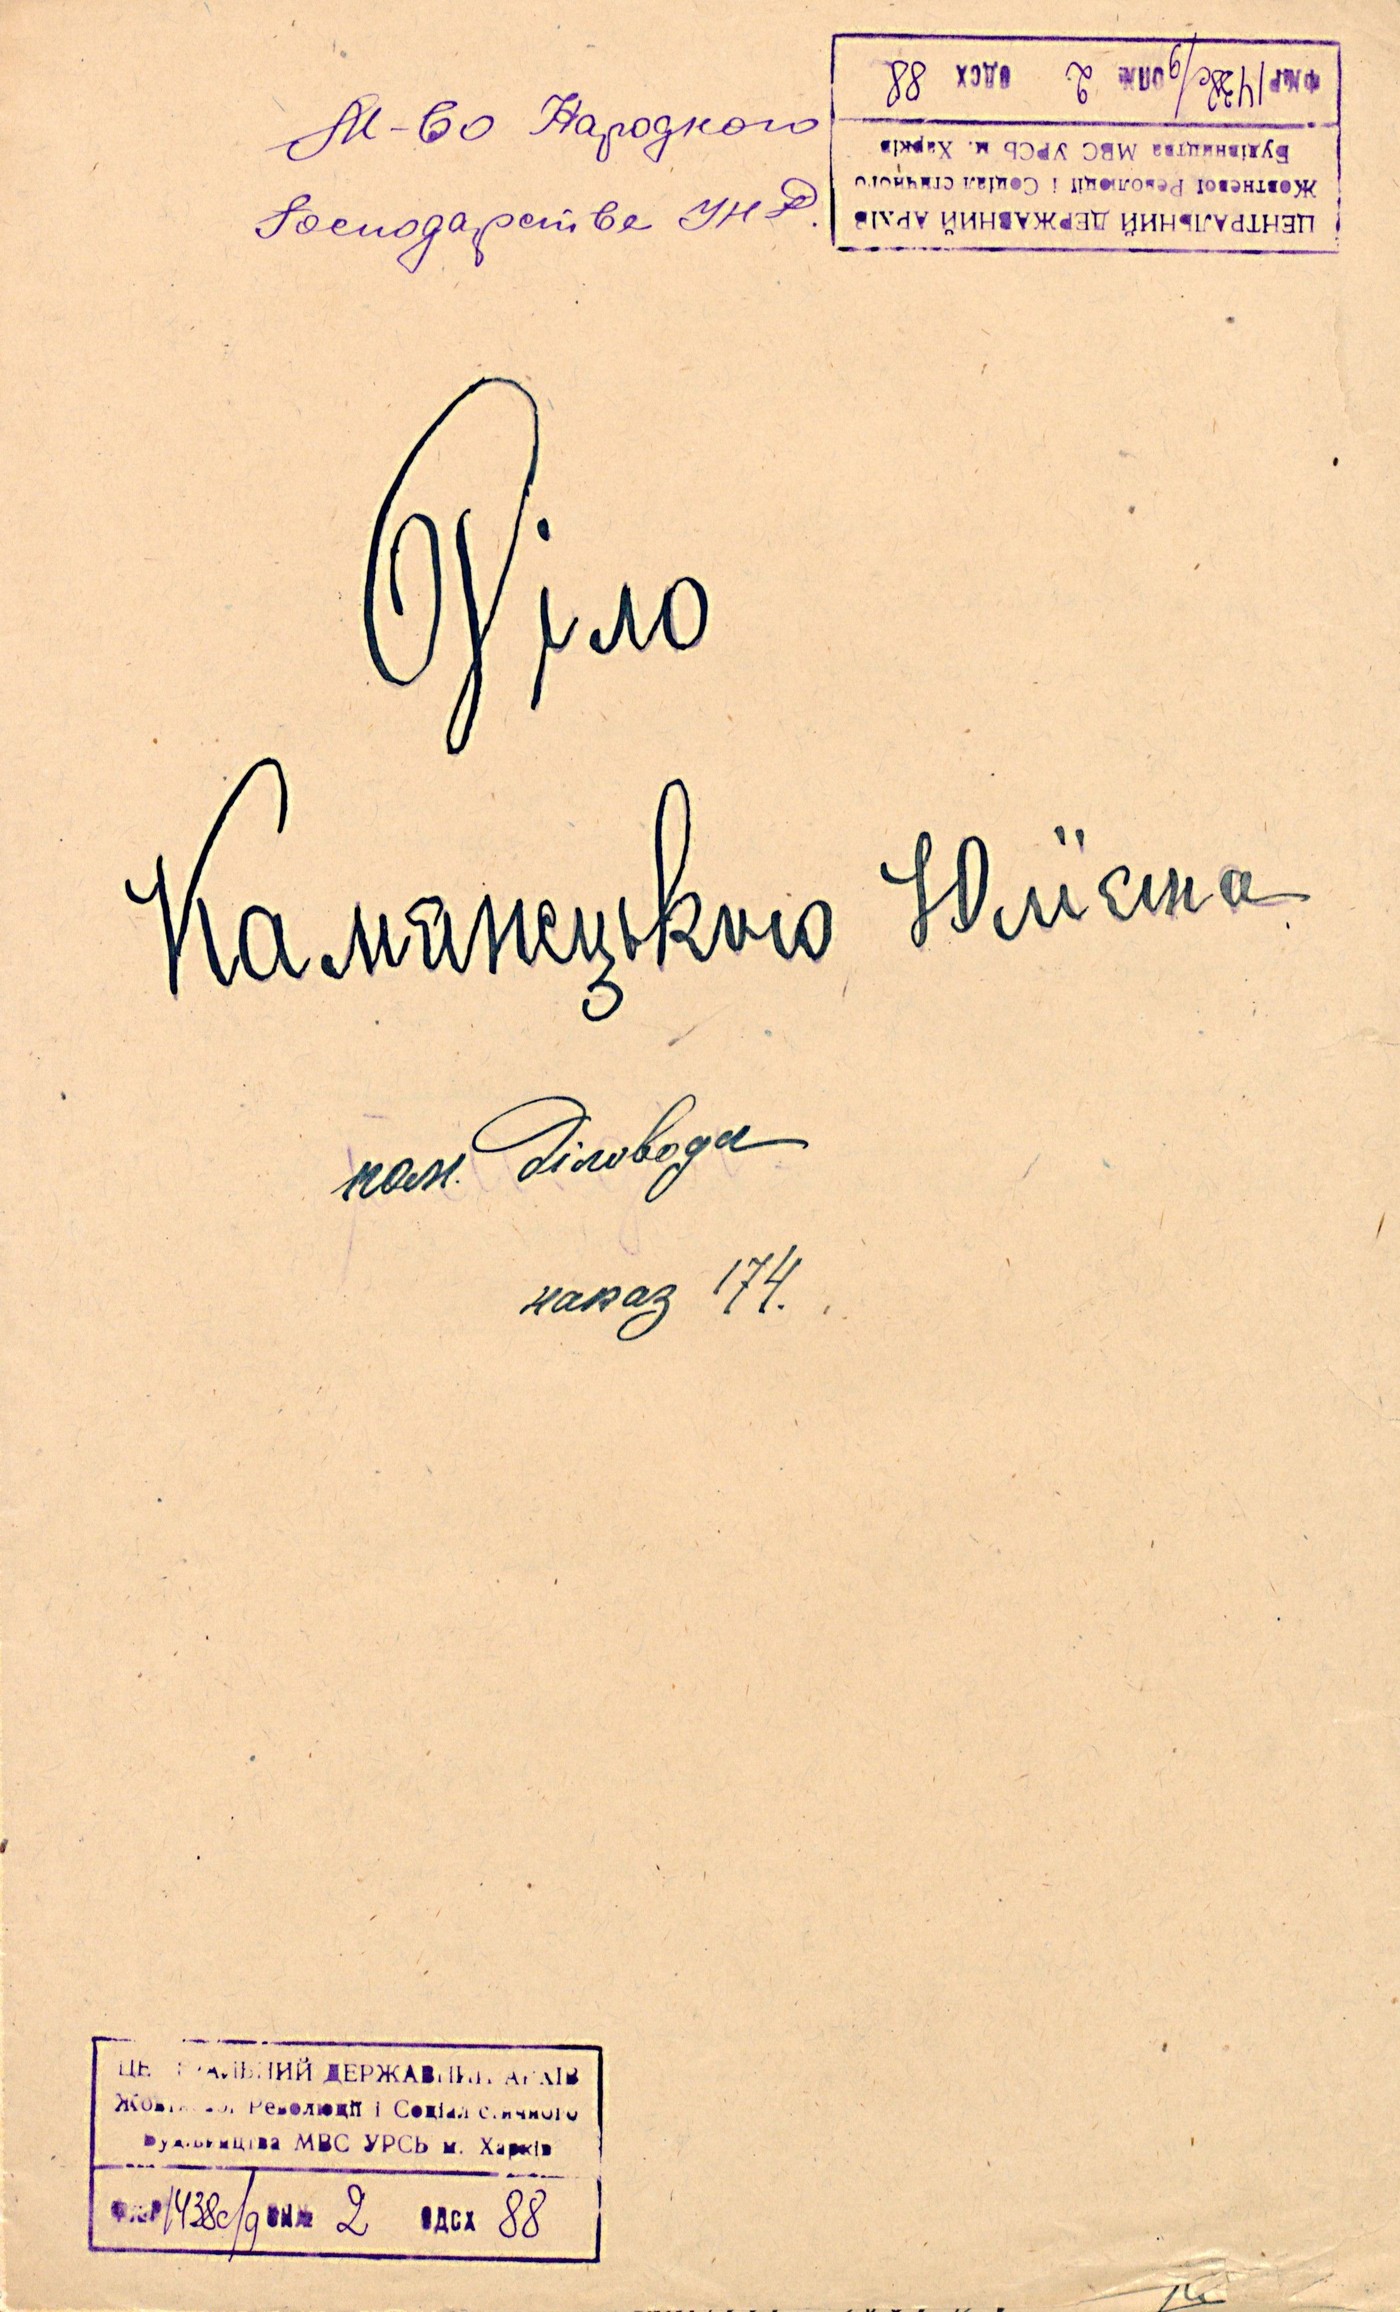 М-во Народного
Господарстве УНР.
ЦЕНТРАЛЬНИЙ ДЕРЖАВНИЙ АРХІВ
Жовтневої Революції і Соціалістичного
Будівництва МВС УРСЬ м. Харків
Ф№Р 1438с/д ОП№ 2 ОДСХ 88
Діло
Камянецького Юлієна
пом. Діловода
наказ 174.
ЦЕНТРАЛЬНИЙ ДЕРЖАВНИЙ АРХІВ
Жовтневої Революції і Соціалістичного
Будівництва МВС УРСЬ м. Харків
Ф№Р 1438с/д ОП№ 2 ОДСХ 88